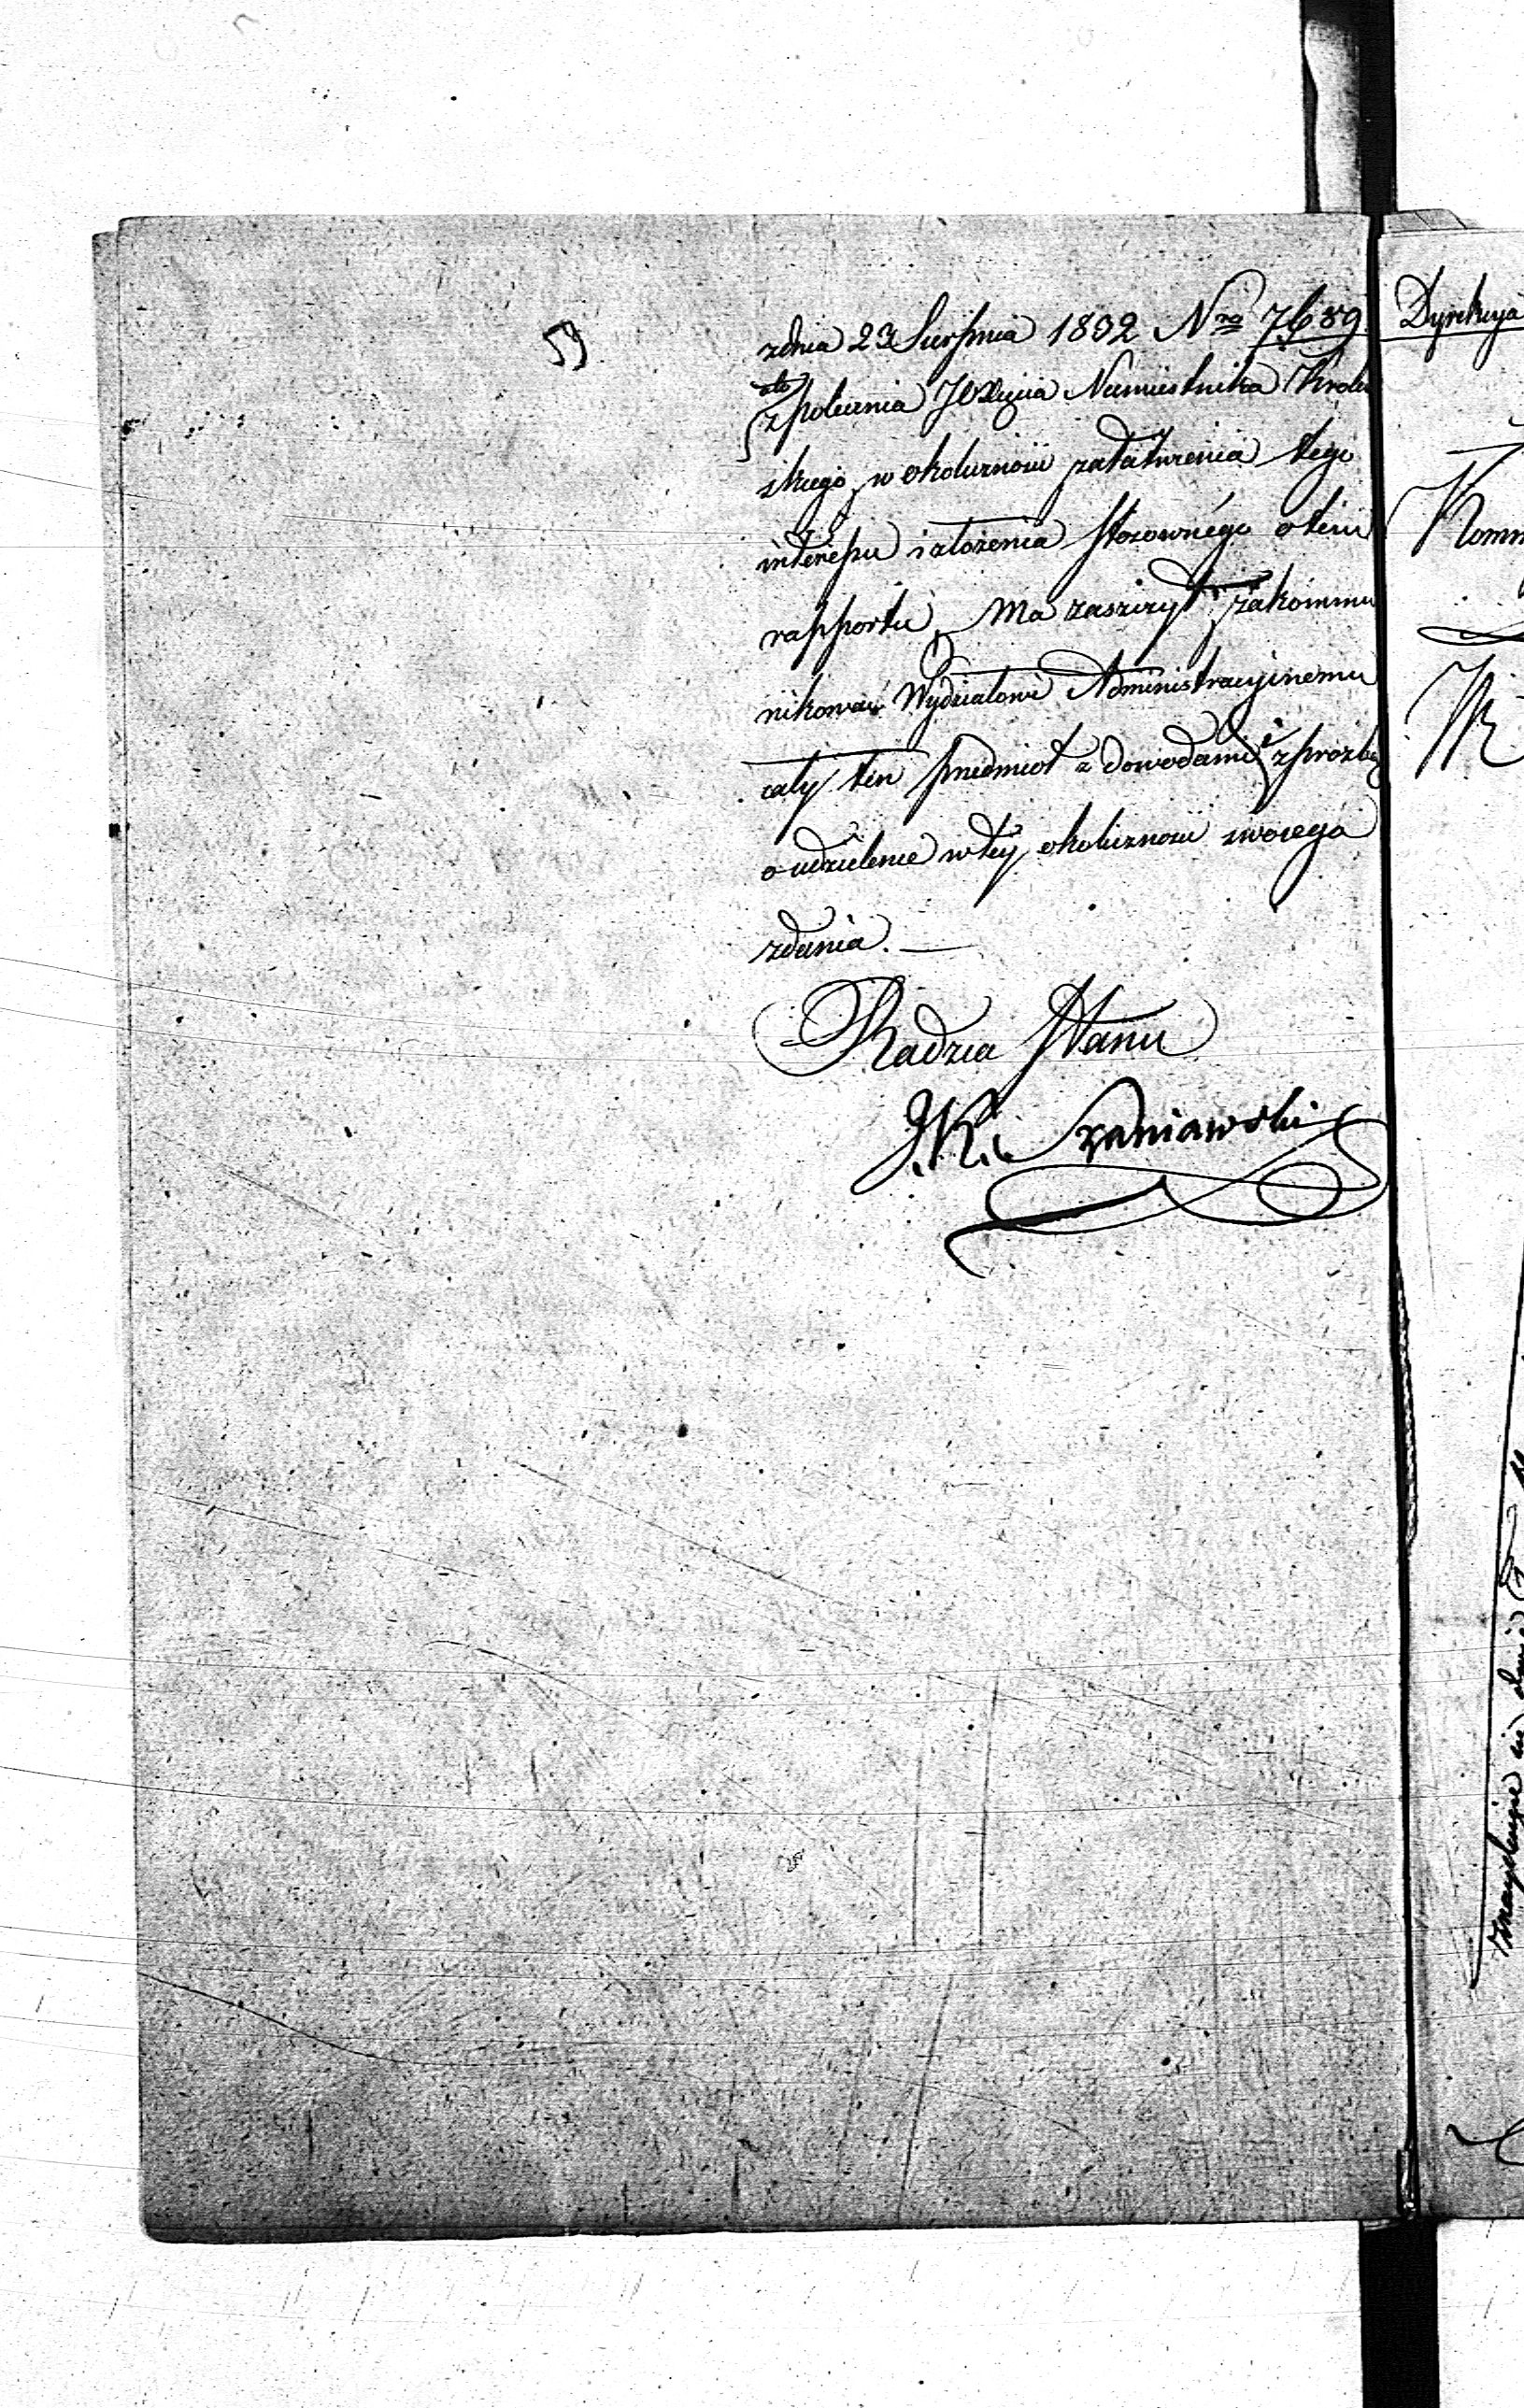 59
zdnia 23 Sierpnia 1832 Nro 7659
z polecenia JOXięcia Namiestnika Krole
skiego, w okoliczności załatwienia tego
interessu i złożenia stosownégo o tém
rapportu, Ma zaszczyt zakommu
nikować Wydziałowi Administracyjnemu
cały ten przedmiot z dowodami i z proźbą
o udzielenie w tey okoliczności swoiego
zdania. —
Radzca Stanu
J.K. Szaniawski
Dyrekcya
Komm